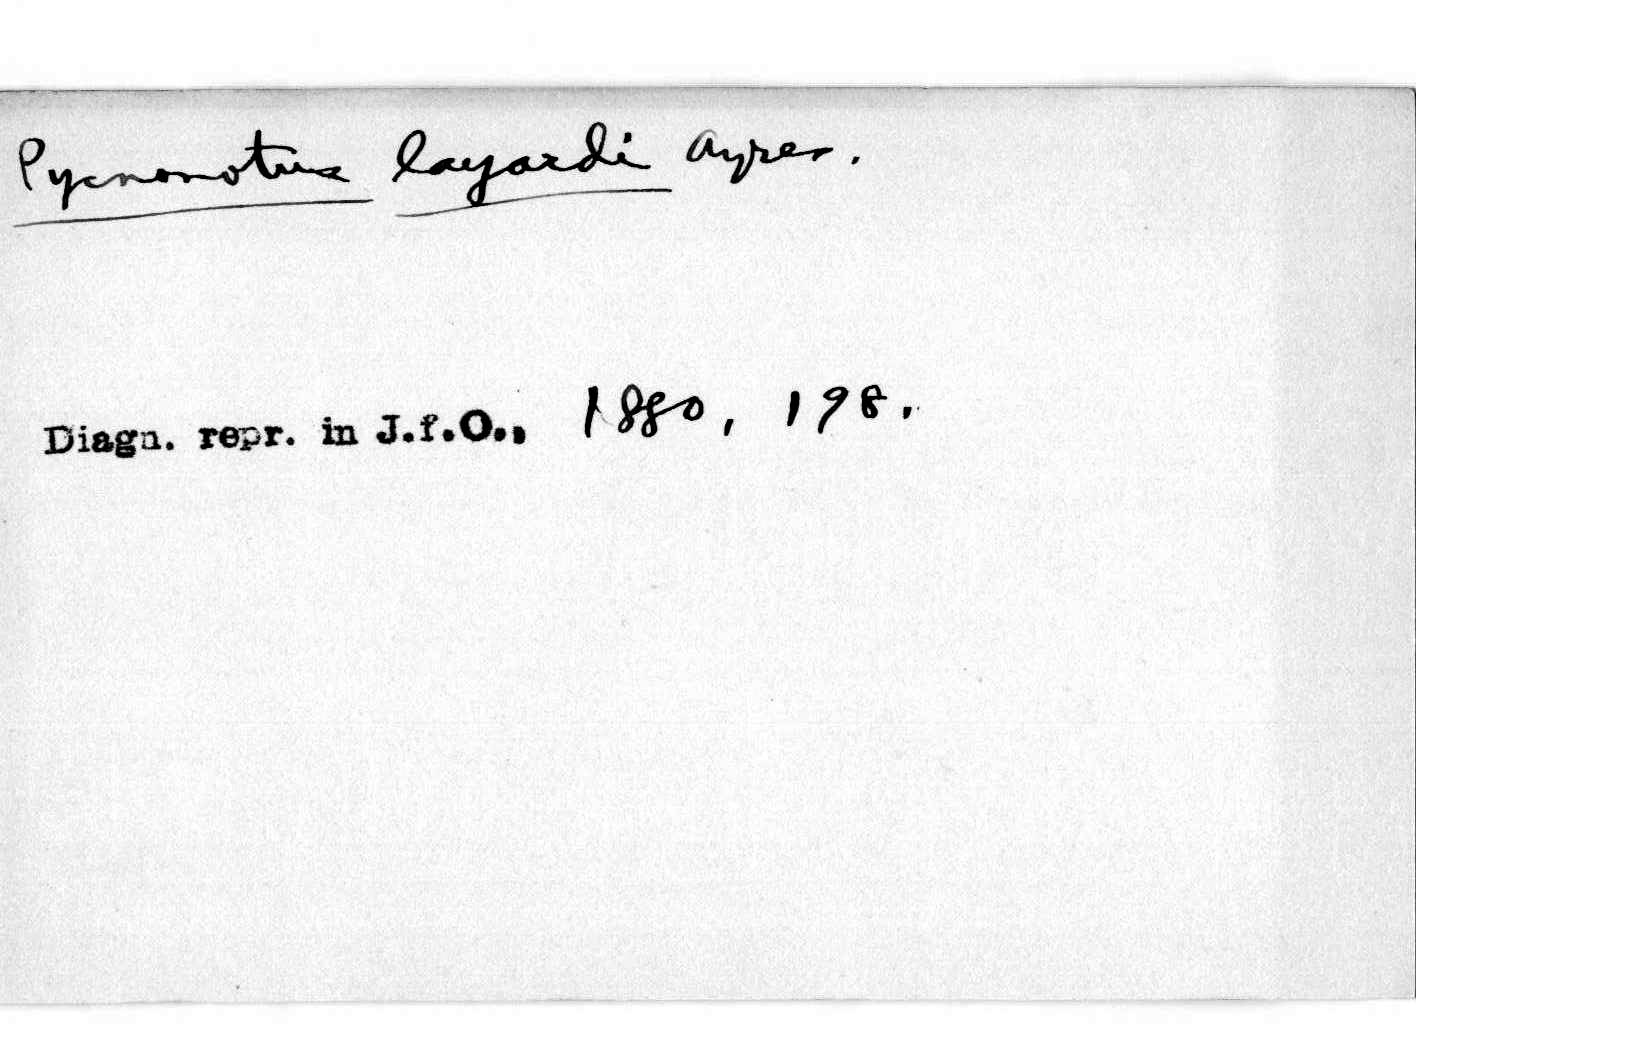 Pycnonotus layardi Ayres.
Diagn. repr. in J.f.O., 1880, 198.